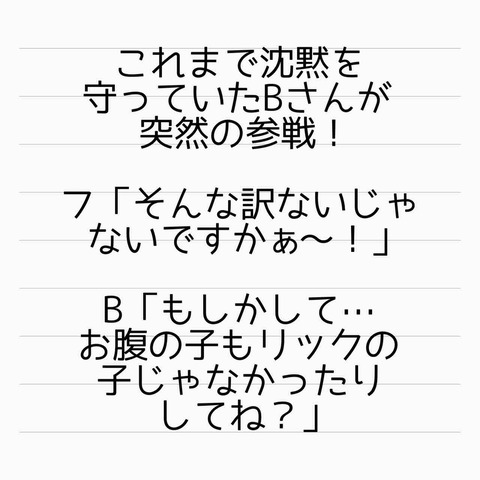 これまで沈黙を
守っていたBさんが
突然の参戦！
フ「そんな訳ないじゃ
ないですかぁ〜！」
B「もしかして…
お腹の子もリックの
子じゃなかったり
してね？」